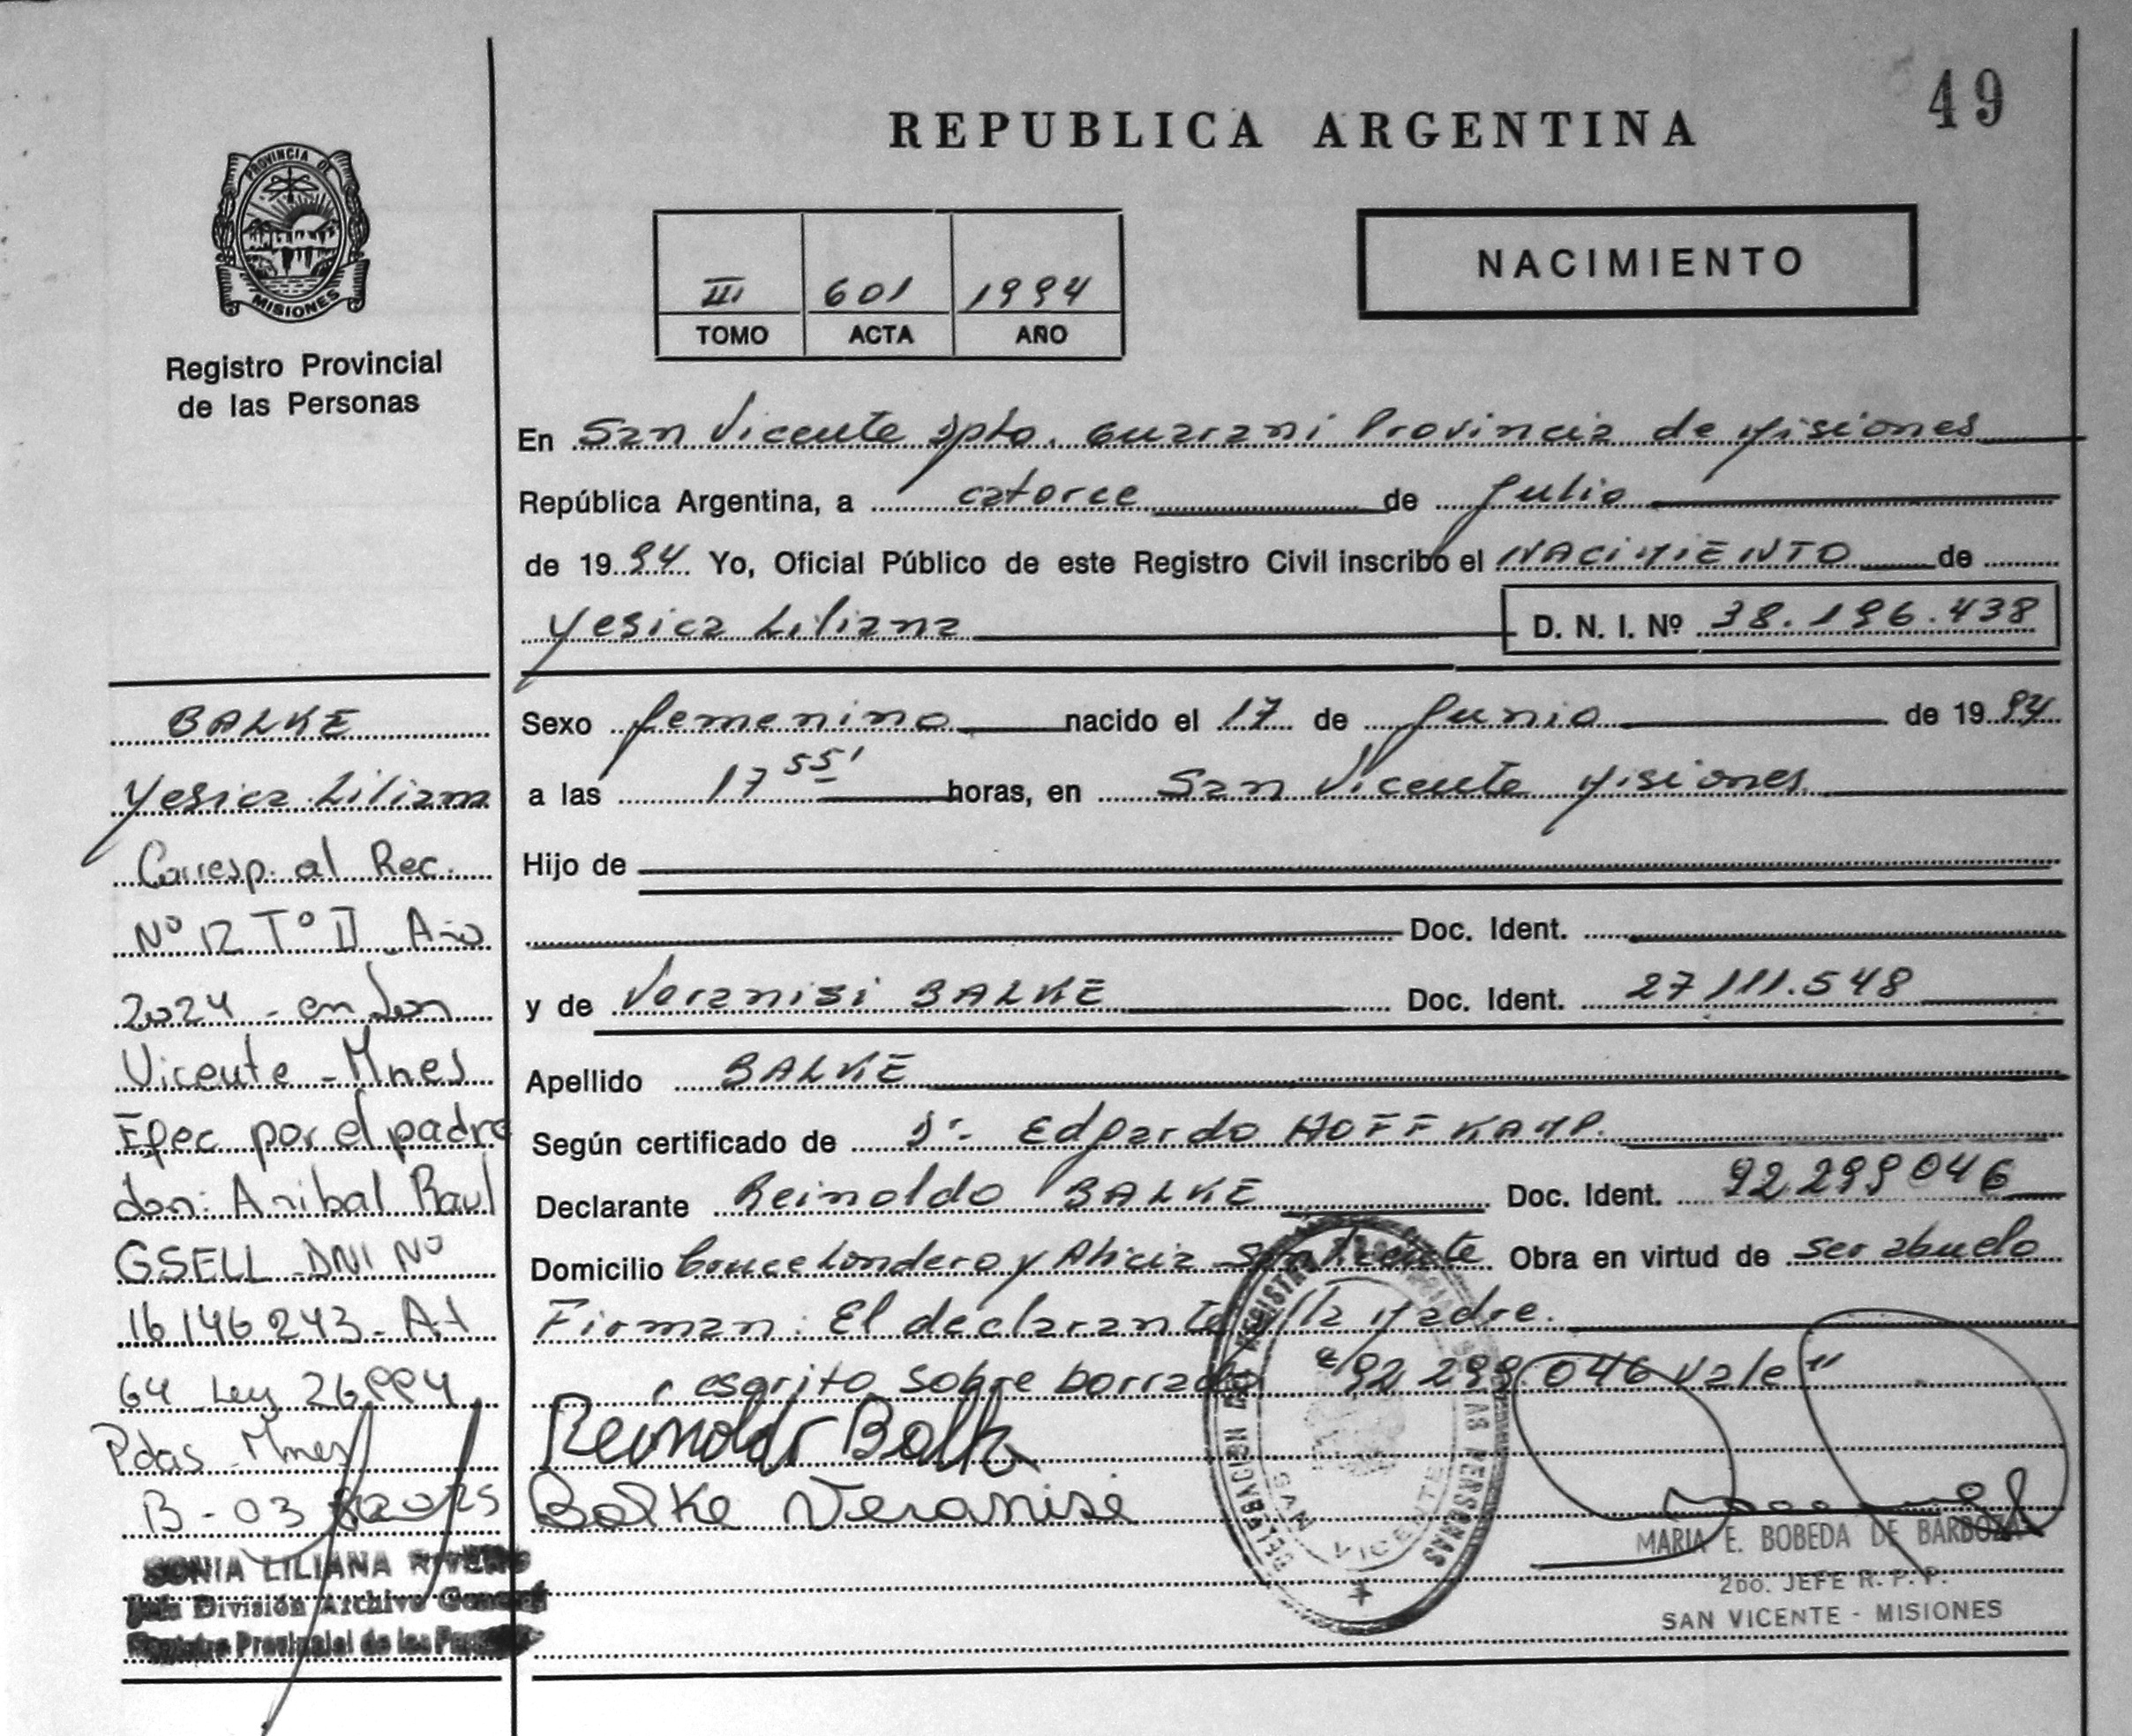 49
REPUBLICA ARGENTINA
PROVINCIA DE
MISIONES
Registro Provincial
de las Personas
III 601 1994
TOMO ACTA AÑO
NACIMIENTO
En San Vicente Dpto. Guarani Provincia de Misiones
República Argentina, a catorce de Julio
de 19 94 Yo, Oficial Público de este Registro Civil inscribo el NACIMIENTO de
Yesica Liliana D. N. I. Nº 38.196.438
Sexo femenino nacido el 17 de Junio de 19 94
a las 17 55' horas, en San Vicente Misiones
Hijo de
Doc. Ident.
y de Veranisi BALKE Doc. Ident. 27 111.548
Apellido BALKE
Según certificado de Dr. Edgardo HOFFKAMP.
Declarante Reinoldo BALKE Doc. Ident. 92 299 046
Domicilio Cruce Londero y Alicia San Vicente Obra en virtud de ser abuelo
Firman: El declarante y la Madre.
escrito sobre borrado "92 299.046 Vale"
Reinoldo Balke
Balke Veranise
BALKE
Yesica Liliana
Corresp. al Rec.
Nº 12 Tº II Año
2024 - en San
Vicente - Mnes
Efec por el padre
don: Anibal Raul
GSELL DNI Nº
16 146 243 - At
64 Ley 26994
Pdas Mnes
B - 03
SONIA LILIANA RIVERO
División Archivo General
Registro Provincial de las Personas
DELEGACION DEL REGISTRO PROVINCIAL DE LAS PERSONAS
SAN VICENTE
MARIA E. BOBEDA DE BARBOZA
2DO. JEFE R. P. P.
SAN VICENTE - MISIONES